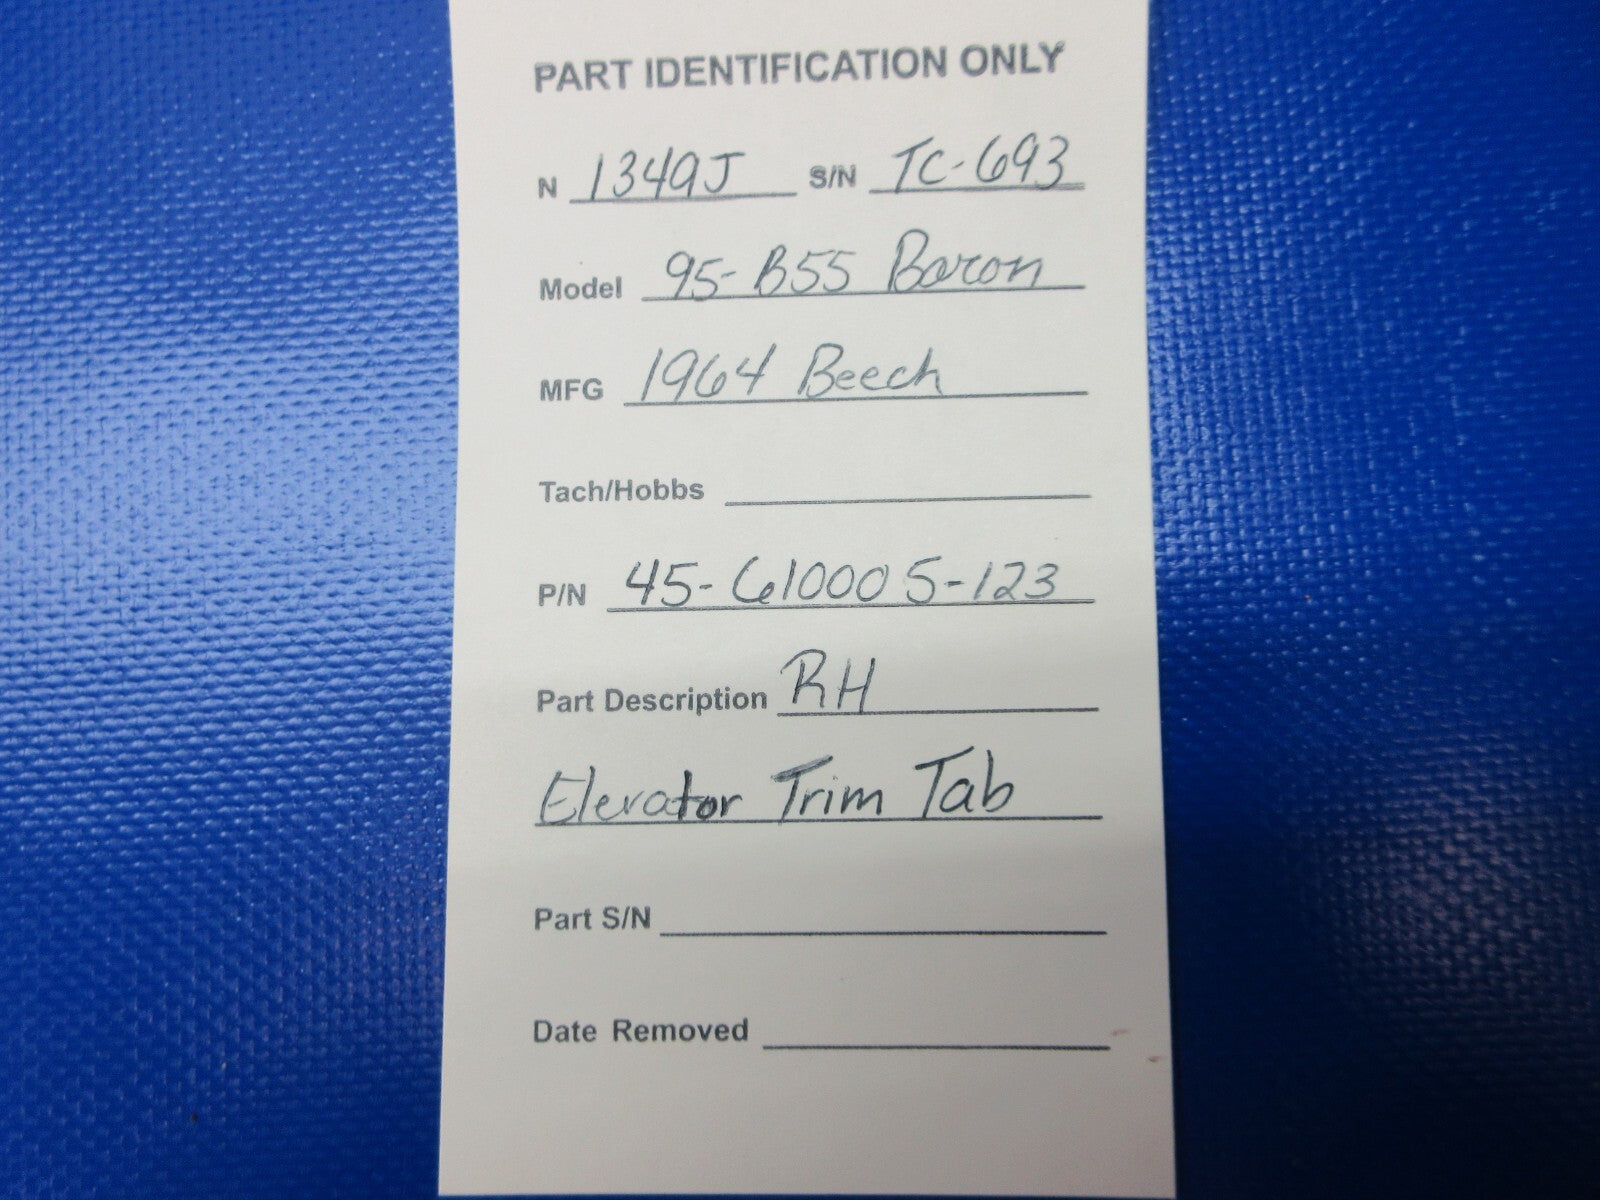 PART IDENTIFICATION ONLY
N 1349J S/N TC-693
Model 95-B55 Baron
MFG 1964 Beech
Tach/Hobbs
P/N 45-610005-123
Part Description RH
Elevator Trim Tab
Part S/N
Date Removed